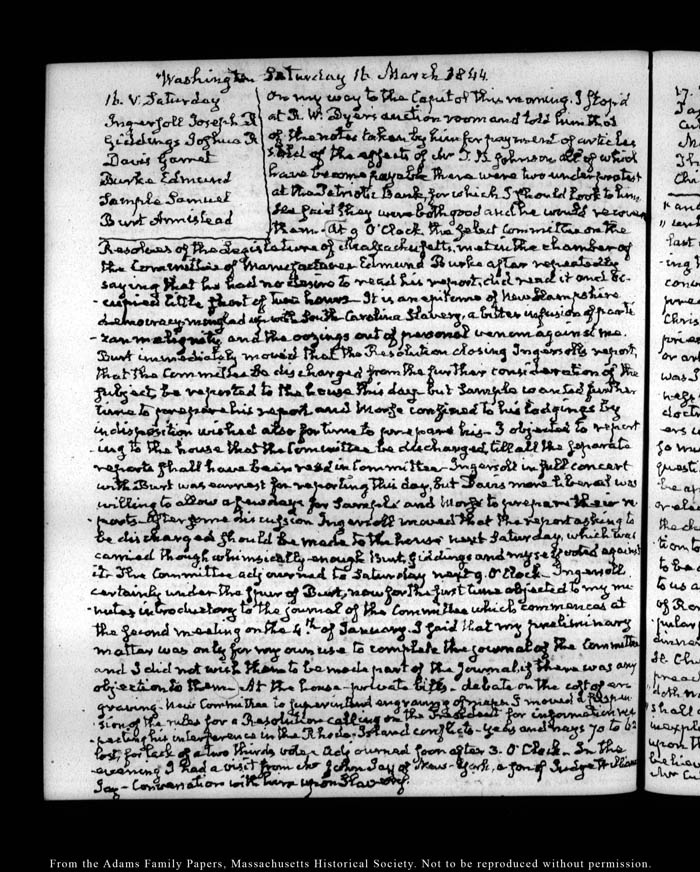 Washington Saturday 16 March 1844
16. V. Saturday
Ingersoll Joseph R
Giddings Joshua R
Davis Garret
Burke Edmund
Sample Samuel
Burt Armistead
On my way to the Capitol this morning, I stop'd
at R. W. Dyer's auction room and told him that
of the notes taken by him for payment of articles
sold of the effects of Mr T. B. Johnson all of which
have become payable there were two under protest
at the Patriotic Bank, for which I should look to him
He said they were both good and he would recover
them. At 9 O'Clock the select Committee on the
Resolves of the Legislature of Massachusetts, met in the chamber of
the Committee of Manufactures Edmund Burke after repeatedly
saying that he had no desire to read his report, did read it and oc-
-cupied little short of two hours. It is an epitome of New Hampshire
democracy mingled up with South-Carolina Slavery, a bitter infusion of parti
-zan malignity, and the oozings out of personal venom against me.
Burt immediately moved that the Resolution closing Ingersoll's report,
that the Committee be discharged from the further consideration of the
subject, be reported to the house this day but Sample wanted further
time to prepare his report and Morse confined to his lodgings by
indisposition wished also for time to prepare his. I objected to report
-ing to the house that the Committee be discharged, till all the separate
reports shall have been read in Committee. Ingersoll in full concert
with Burt was earnest for reporting this day, but Davis more liberal was
willing to allow a few days for Sample and Morse to prepare their re
-ports. After some discussion Ingersoll moved that the report asking to
be discharged should be made to the house next Saturday, which was
carried though whimsically enough Burt, Giddings and myself voted against
it. The Committee adjourned to Saturday next 9. O'Clock. Ingersoll
certainly under the spur of Burt, now for the first time objected to my mi
-nutes introductory to the journal of the Committee which commences at
the second meeting on the 4th of January. I said that my preliminary
matter was only for my own use to complete the journal of the Committee
and I did not wish them to be made part of the Journal if there was any
objection to them. At the house - private bills - debate on the cost of en
graving - New Committee to superintend engraving of maps. I moved a suspen
-sion of the rules for a Resolution calling on the President for information res
-pecting his interference in the Rhode-Island conflicts - yeas and nays 70 to 62
lost, for lack of a two thirds vote. Adjourned soon after 3. O'Clock. In the
evening I had a visit from Mr John Jay of New-York, a son of Judge William
Jay - Conversation with him upon Slavery.
17.
From the Adams Family Papers, Massachusetts Historical Society. Not to be reproduced without permission.